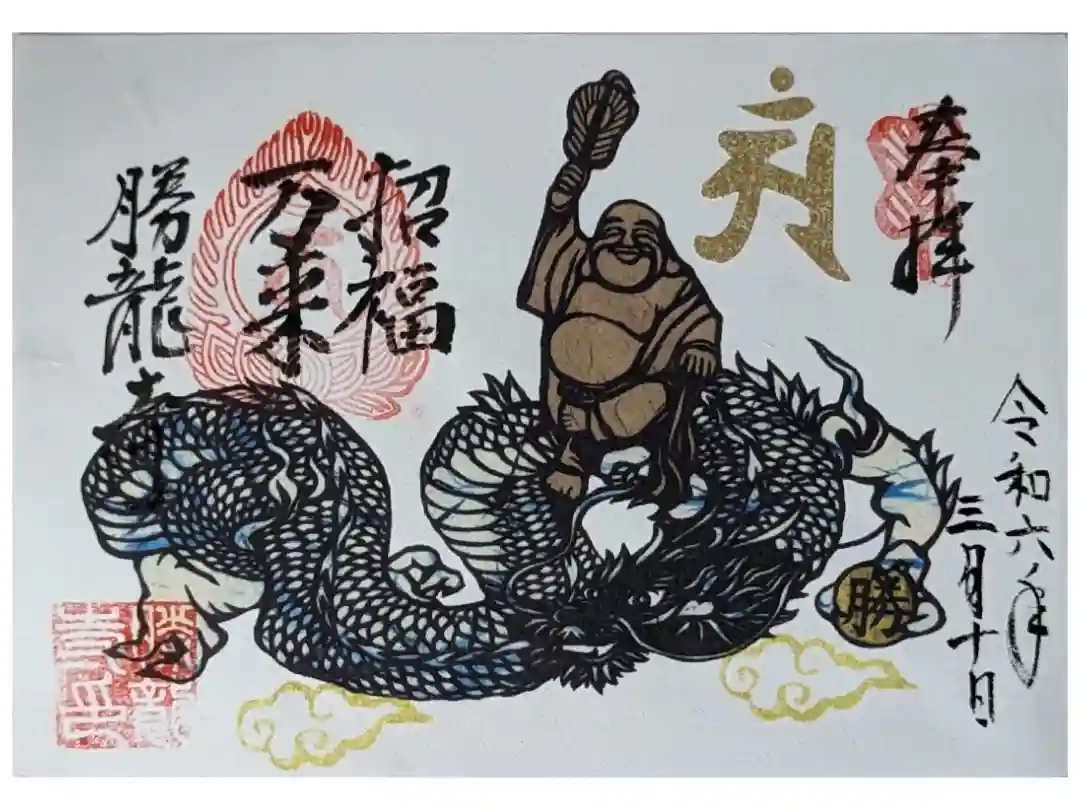 奉拝
令和六年
三月十日
勝
招福
万来
勝龍寺
勝龍
寺印